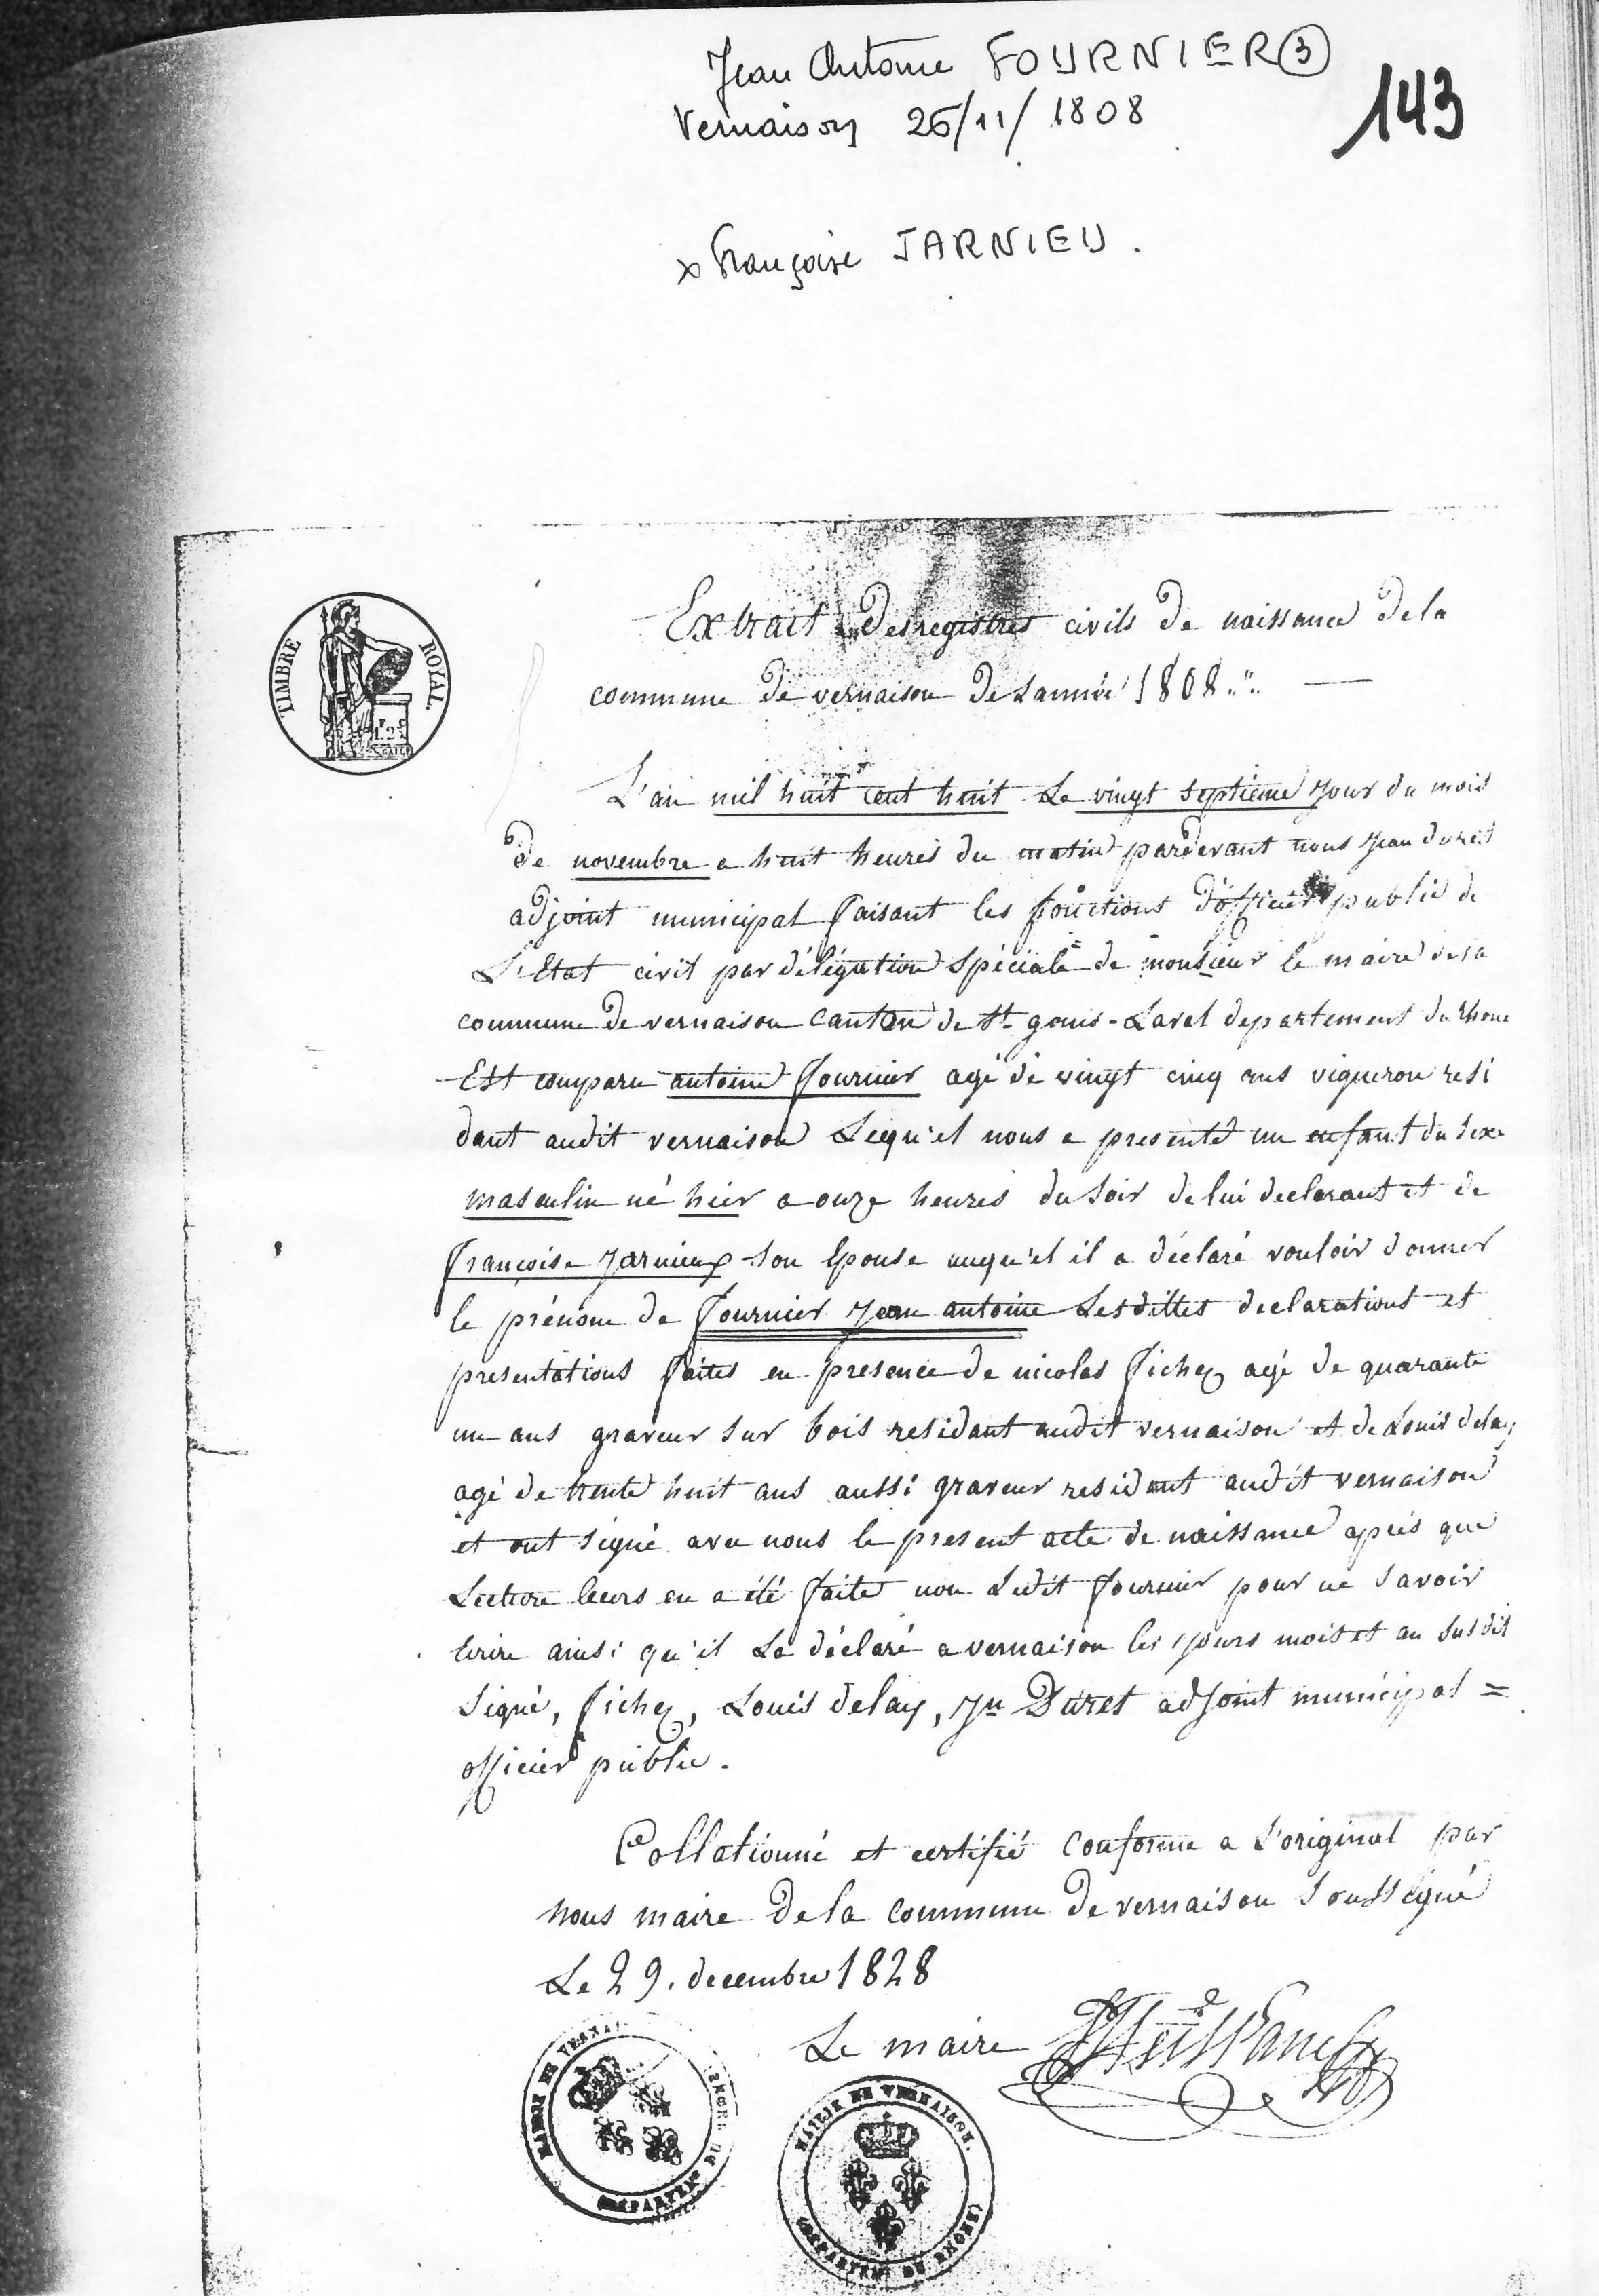 Jean Antoine FOURNIER ③
Vernaison 26/11/1808
143
x Françoise JARNIEU.
TIMBRE ROYAL.
Extrait des registres civils de naissance de la
commune de vernaison de Lannée 1808
L'an mil huit cent huit Le vingt septieme jour du mois
de novembre a huit heures du matin pardevant nous Jean duret
adjoint municipal faisant les fonctions d'officier public de
L'Etat civil par délégation spéciale de monsieur le maire de la
commune de vernaison canton de St genis-Laval departement du rhone
Est comparu antoine fournier agé de vingt cinq ans vigneron resi
dant audit vernaison Lequ'el nous a presenté un enfant du sexe
masculin né hier a onze heures du soir de lui declarant et de
françoise Jarnieux son Epouse auqu'el il a déclaré vouloir donner
le prénom de fournier Jean antoine Lesdittes declarations et
presentations faites en presence de nicolas fichez agé de quarante
un ans graveur sur bois residant audit vernaison et de Louis delay
agé de trente huit ans aussi graveur resident audit vernaison
et ont signé avec nous le present acte de naissance après que
Lecture leurs en a été faite non Ledit fournier pour ne savoir
Ecrire ainsi qu'il La déclaré a vernaison les jours mois et an susdit
Signé, fichez, Louis delay, Jn Duret adjoint municipal =
officier public.
Collationné et certifié conforme a L'original par
nous maire de la commune de vernaison soussigné
Le 29. decembre 1828
Le maire
MAIRIE DE VERNAI
DEPARTEMT DU RHONE
MAIRIE DE VERNAISON.
DEPARTEMT DU RHONE